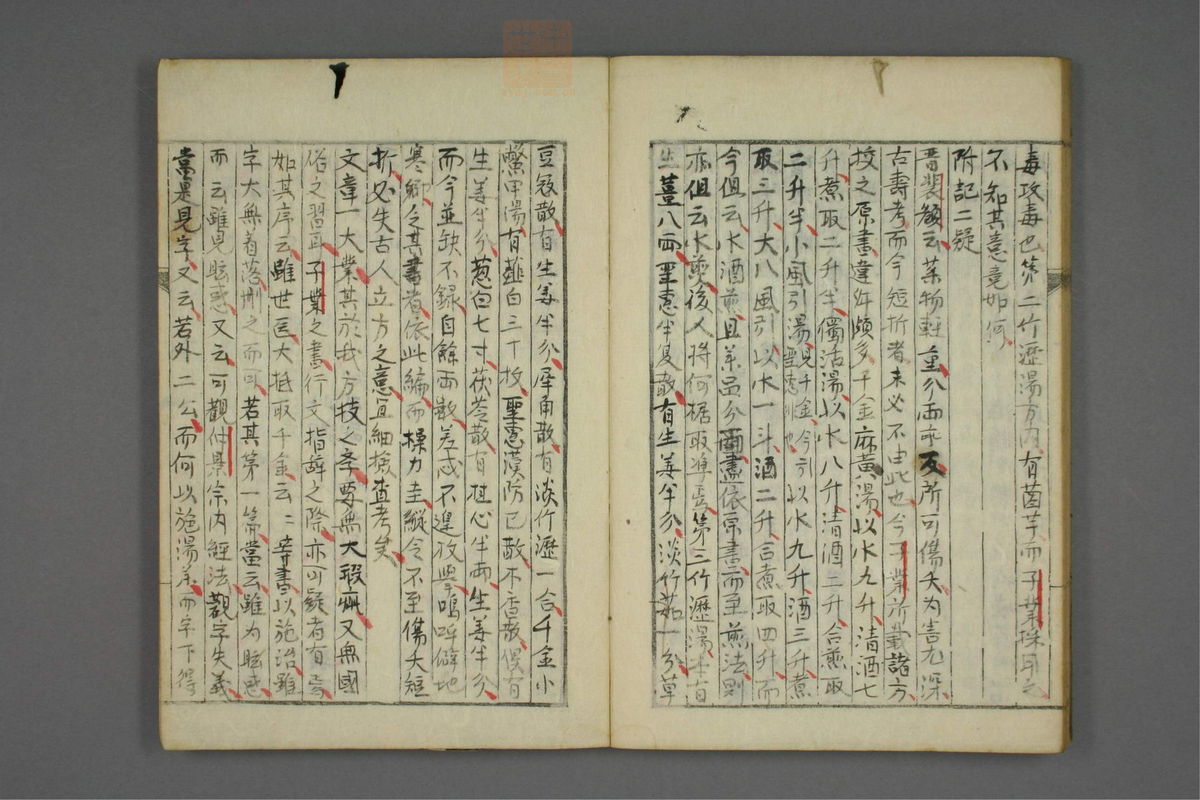 毒攻毒也第二竹瀝湯方内有茵芋而子業採耳云
不知其意竟如何
附記二疑
晋裴頠云藥物輕重分兩乖互所可傷夭為害尤深
古壽考而今短折者未必不由此也今子業所載諸方
挍之原書違舛頗多千金麻黄湯以水九升清酒七
升煮取二升半獨活湯以水八升清酒二升合煎取
二升半小風引湯見千金聖惠今方以水九升酒三升煮
取三升大八風引以水一斗酒二升合煮取四升而
今但云水酒煎且藥品分兩盡依原書而至煎法則
亦但云水煎後人将何据取準焉第三竹瀝湯本有
生薑八兩聖惠半夏散有生姜半分淡竹茹一分草
豆蔻散有生姜半分犀角散有淡竹瀝一合千金小
鱉甲湯有薤白三十枚聖惠漢防己散不香散俱有
生姜半分葱白七寸茯苓散有粗心半兩生姜半分
而今並缺不録自餘兩數差忒不遑放擧嗚呼僻地
寒鄉令其書者依此編而操力圭縱令不至傷夭短
折必失古人立方之意宜細撿查考矣
文章一大業其於我方技之本要無大瑕疵又無國
俗之習耳子業之書行文指辭之際亦可疑者有焉
如其序云雖世医大抵取千金云二等書以施治雖
字大無着落刪之而可若其第一第當云雖為眩惑
而云雖見眩惑又云可觀仲景宗内經法觀字失義
當是見字又云若外二公而何以施湯藥而字下得